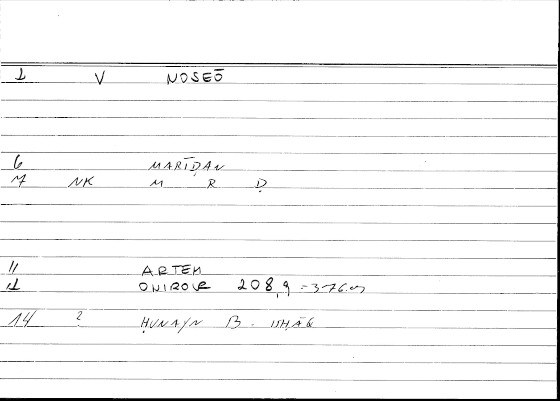 1 V NOSEŌ
6 MARĪḌAN
7 NK M R Ḍ
11 ARTEM
ONIROCR 208,9 = 376
14 ? ḤUNAYN B. ISḤĀQ